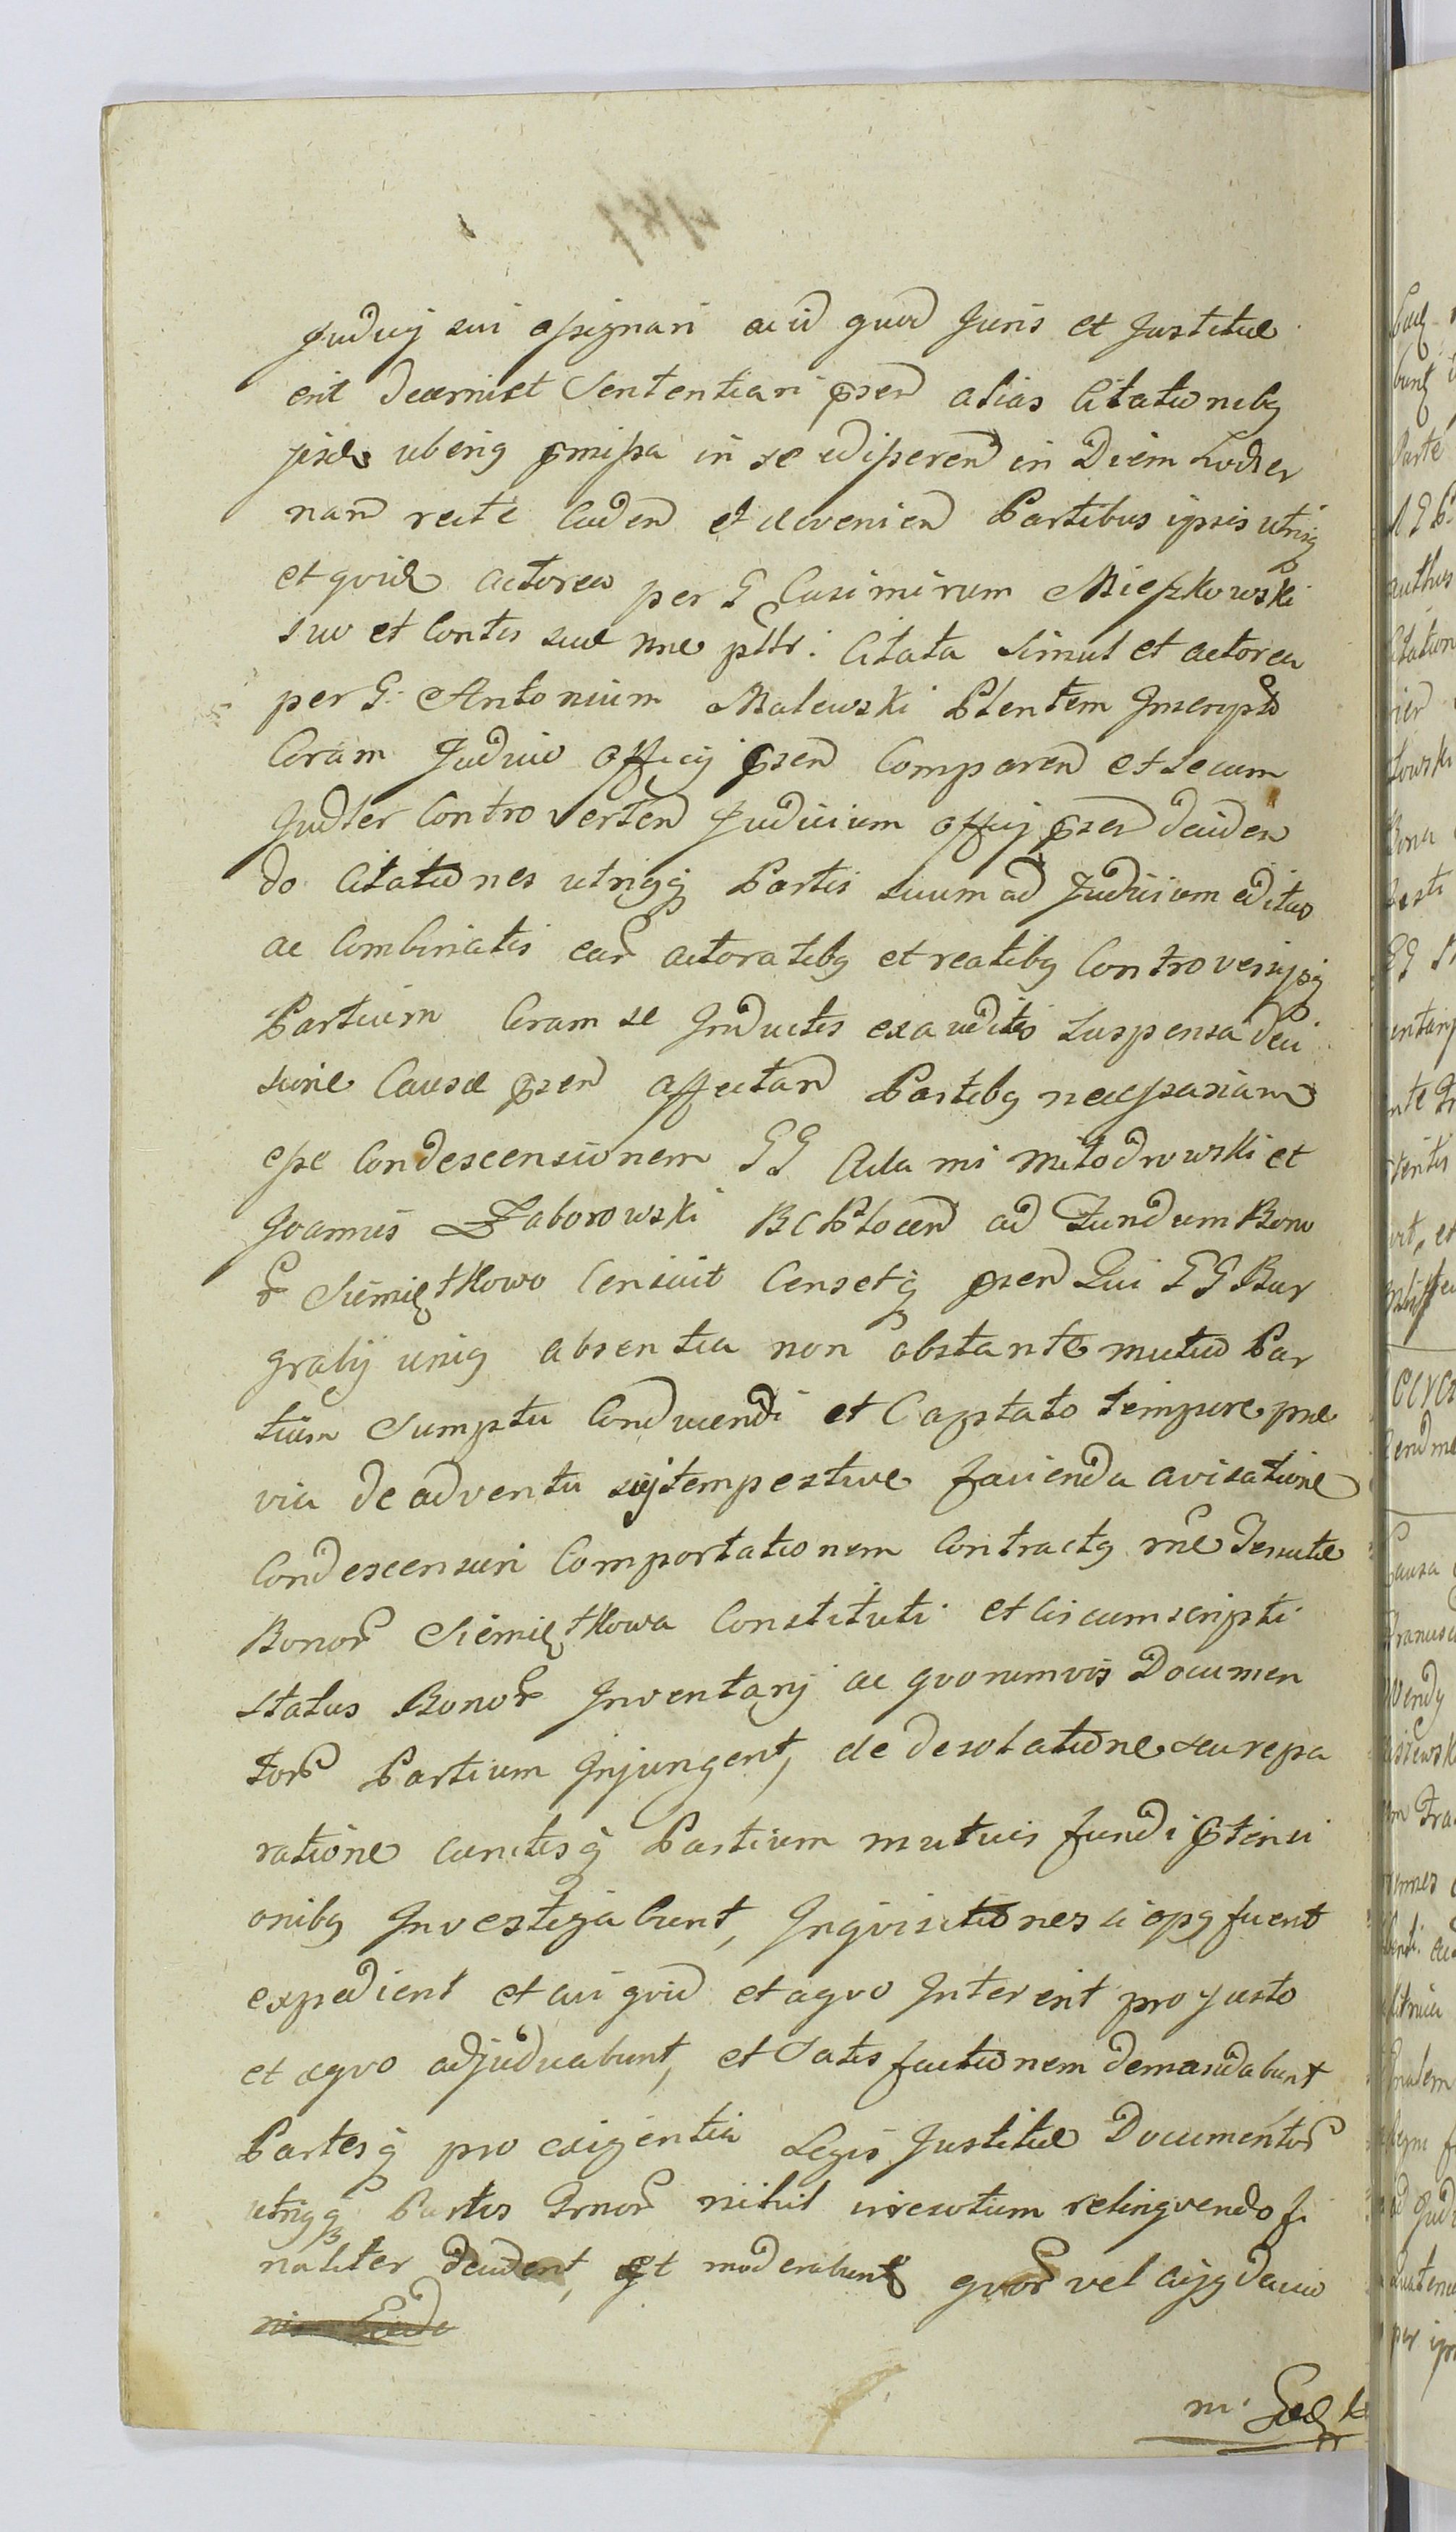 Judicij sui assignari ac id quod Juris et Justitiæ
erit decerniet Sententiari pñsen alias Citationibq
ijsdē uberiq pmissa in se edisseren in Diem hodier
nam recte caden et devenien Partibus ipsis utrisq
et quidē actorea per G Casimirum Mieszkowski
suo et Contis suæ nne ptti. Citata simul et actorea
per G. Antonium Malewski Plentem Inscripto
Coram Judicio officij pñsen Comparen et secum
Judter Controverten Judicium officij pñsen deciden
do Citationes utriqq Partis suum ad Judicium editas
ac Combinatis ear actoratibq et reatibq Controversijsq
Partium Coram se Inductis exauditis suspensa deci
sione Causæ pñsen affectan Partibq necessariam
esse Condescensionem GG Adami Młodrowski et
Joannis Zaborowski BC Płocen ad Fundum Bono
r Siemiętkowo Censuit Censetq pñsen Qui GG Bur
grabij uniq absentia non obstante mutuo Par
tium Sumptu Conducendi et Captato tempore præ
via de adventu sui tempestive facienda avisatione
Condescensuri Comportationem Contractq rne Tenutæ
Bonor Siemiętkowa Constituti et Circumscripti
status Bonor Inventarij ac quorumvis Documen
tor Partium Injungent, de desolatione seu repa
ratione cunctisq Partium mutuis fundi ptensi
onibq Investigabunt, Inqvisitiones si opq fuerit
expedient et cui qvid et aqvo Intererit pro justo
et æqvo adjudicabunt, et Satisfactionem demandabunt
Partesq pro exigentia Legis Justitiæ Documentor
utriqq Partis Jrnor nihil irresolutum relinqvendo fi
naliter decident, et moderabunt qvor vel cujq decisio
m. Gedk